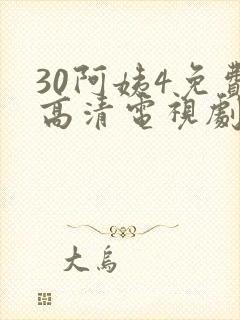 30阿姨4免費
高清電視劇
大鳥